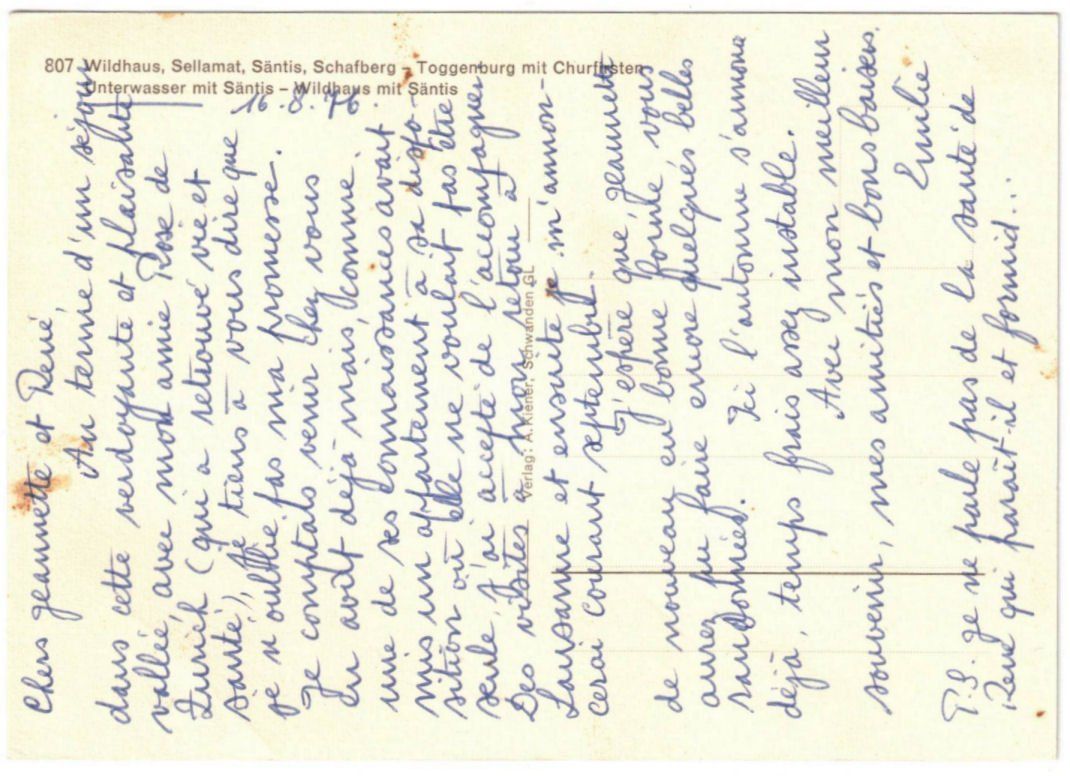 807 Wildhaus, Sellamat, Säntis, Schafberg – Toggenburg mit Churfirsten
Unterwasser mit Säntis – Wildhaus mit Säntis
16.8.76.
Verlag: A. Kiener, Schwanden GL
Chers Jeannette et René
Au terme d'un séjour
dans cette verdoyante et plaisante
vallée, avec mon amie Rose de
Zurich (qui a retrouvé vie et
santé), je tiens à vous dire que
je n'oublie pas ma promesse.
Je comptais venir chez vous
en août déjà mais, comme
une de ses connaissances avait
mis un appartement à sa dispo-
sition où elle ne voulait pas être
seule, j'ai accepté de l'accompagner.
Des visites à mon retour à
Lausanne et ensuite je m'annon-
cerai courant septembre.
J'espère que Jeannette
de nouveau en bonne forme, vous
aurez pu faire encore quelques belles
randonnées. Ici l'automne s'annonce
déjà, temps frais assez instable.
Avec mon meilleur
souvenir, mes amitiés et bons baisers.
Emilie
P.S. Je ne parle pas de la santé de
René qui paraît-il est formid...